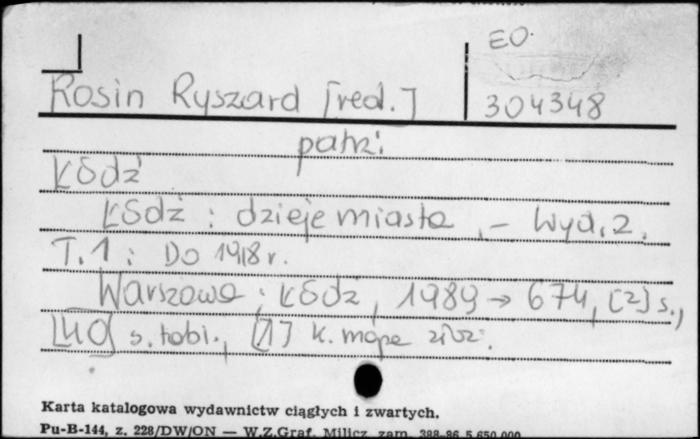 EO.
Rosin Ryszard [red.]
304348
patrz:
Łódź
Łódź : dzieje miasta . – Wyd. 2.
T. 1 : Do 1918 r.
Warszawa ; Łódź, 1989 → 674, [2] s.,
[40] s. tabl., [1] k. mapa
Karta katalogowa wydawnictw ciągłych i zwartych.
Pu-B-144, z. 228/DW/ON — W.Z.Graf. Milicz, zam. 388-86 5.650.000